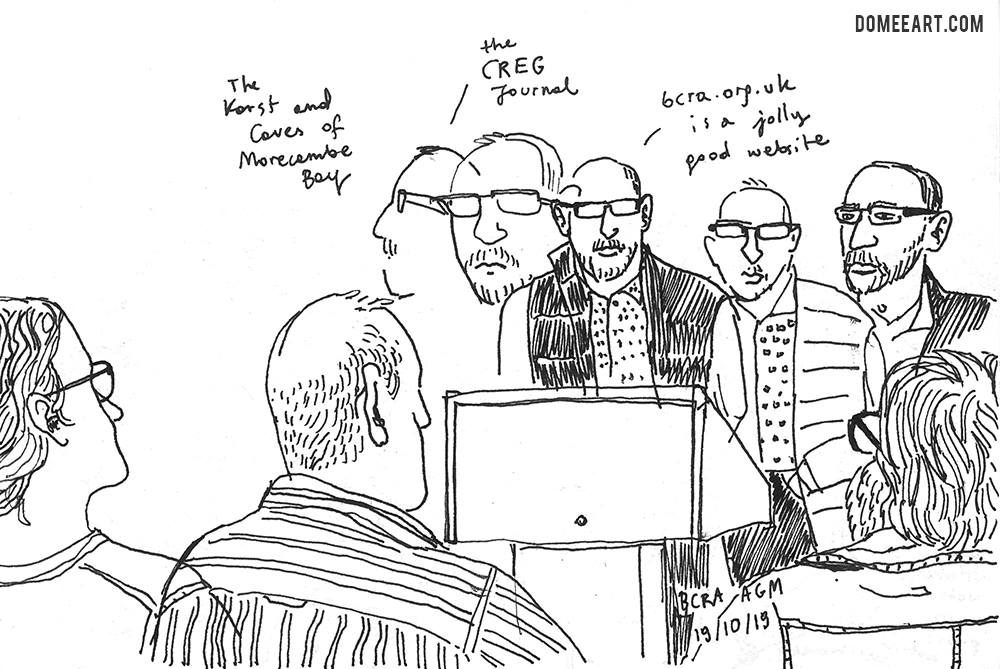 DOMEEART.COM
The
Karst and
Caves of
Morecambe
Bay
the
CREG
Journal
bcra.org.uk
is a jolly
good website
BCRA AGM
19/10/19